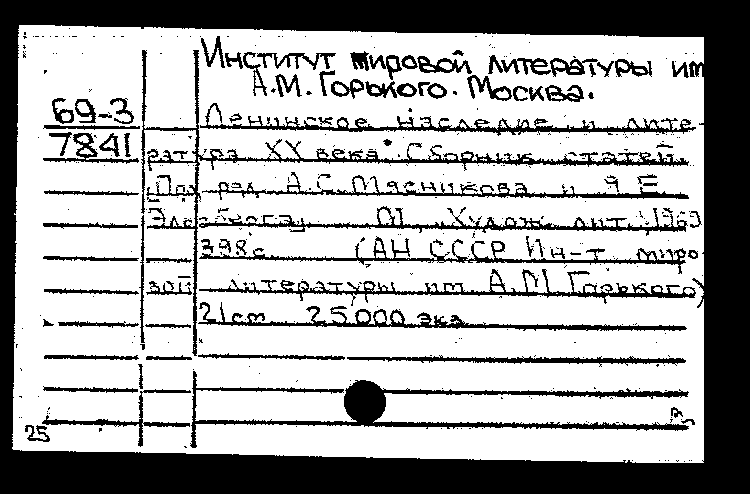 Институт мировой литературы им
А.М. Горького. Москва.
69-3
Ленинское наследие и лите-
7841
ратура XX века. Сборник статей.
[Под ред. А.С. Мясникова и Я.Е.
Эльсберга]. М., "Худож. лит.", 1969
398 с. (АН СССР. Ин-т миро-
вой литературы им. А.М. Горького)
21 cm 25000 экз
25